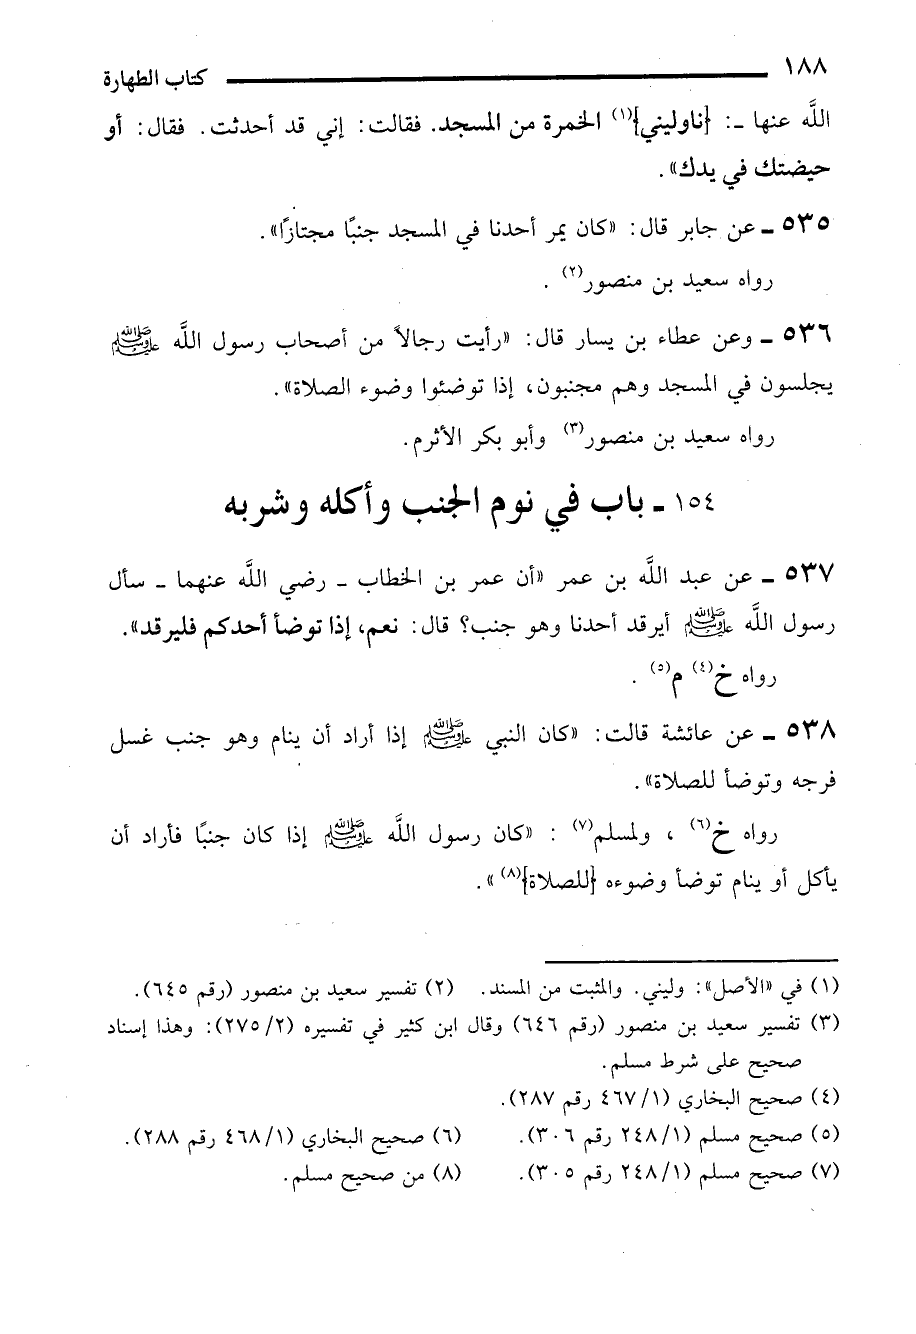 ١٨٨ كتاب الطهارة
اللَّه عنها ـ: {ناوليني}(١) الخمرة من المسجد. فقالت: إني قد أحدثت. فقال: أو
حيضتك في يدك».
٥٣٥ ـ عن جابر قال: «كان يمر أحدنا في المسجد جنبًا مجتازًا».
رواه سعيد بن منصور(٢) .
٥٣٦ ـ وعن عطاء بن يسار قال: «رأيت رجالاً من أصحاب رسول اللَّه ﷺ
يجلسون في المسجد وهم مجنبون، إذا توضئوا وضوء الصلاة».
رواه سعيد بن منصور(٣) وأبو بكر الأثرم.
١٥٤ ـ باب في نوم الجنب وأكله وشربه
٥٣٧ ـ عن عبد اللَّه بن عمر «أن عمر بن الخطاب ـ رضي اللَّه عنهما ـ سأل
رسول اللَّه ﷺ أيرقد أحدنا وهو جنب؟ قال: نعم، إذا توضأ أحدكم فليرقد».
رواه خ(٤) م(٥) .
٥٣٨ ـ عن عائشة قالت: «كان النبي ﷺ إذا أراد أن ينام وهو جنب غسل
فرجه وتوضأ للصلاة».
رواه خ(٦) ، ولمسلم(٧) : «كان رسول اللَّه ﷺ إذا كان جنبًا فأراد أن
يأكل أو ينام توضأ وضوءه {للصلاة}(٨)».
(١) في «الأصل»: وليني. والمثبت من المسند. (٢) تفسير سعيد بن منصور (رقم ٦٤٥).
(٣) تفسير سعيد بن منصور (رقم ٦٤٦) وقال ابن كثير في تفسيره (٢/ ٢٧٥): وهذا إسناد
صحيح على شرط مسلم.
(٤) صحيح البخاري (١/ ٤٦٧ رقم ٢٨٧).
(٥) صحيح مسلم (١/ ٢٤٨ رقم ٣٠٦). (٦) صحيح البخاري (١/ ٤٦٨ رقم ٢٨٨).
(٧) صحيح مسلم (١/ ٢٤٨ رقم ٣٠٥). (٨) من صحيح مسلم.